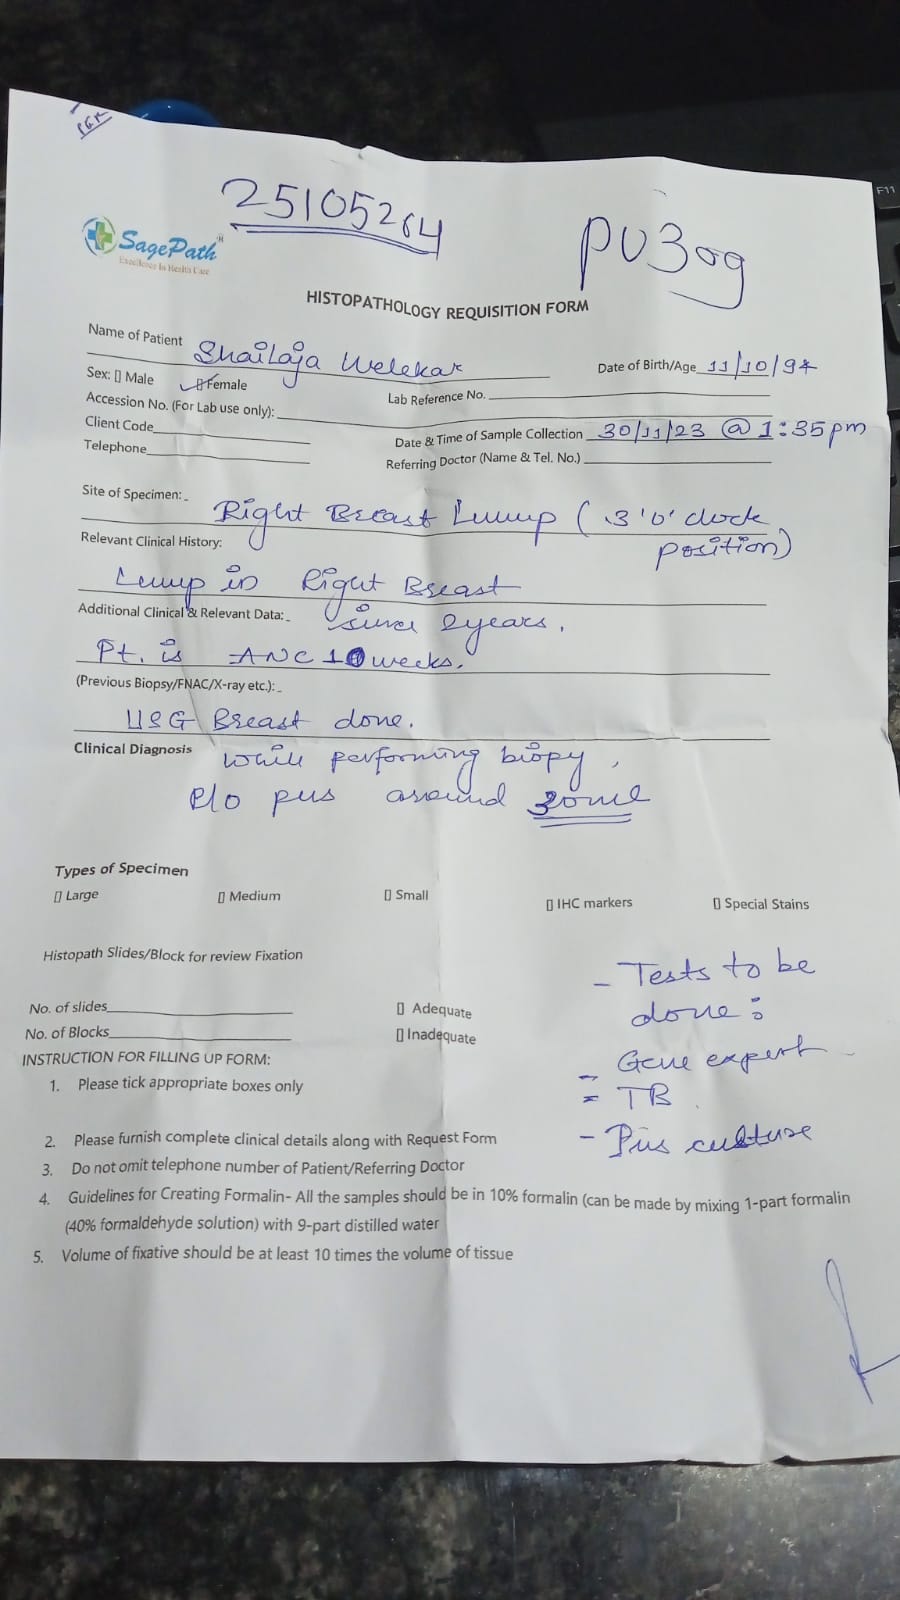 PGK
25105264
PU309
SagePath
Excellence In Health Care
F11
HISTOPATHOLOGY REQUISITION FORM
Name of Patient Shailaja Welekar Date of Birth/Age 11/10/94
Sex: [] Male [] Female Lab Reference No.
Accession No. (For Lab use only):
Client Code Date & Time of Sample Collection 30/11/23 @ 1:35pm
Telephone Referring Doctor (Name & Tel. No.)
Site of Specimen:- Right Breast Lump ( 3 'o' clock
position)
Relevant Clinical History:
Lump in Right Breast
Additional Clinical & Relevant Data:- since 2years.
Pt. is ANC 10 weeks.
(Previous Biopsy/FNAC/X-ray etc.):-
USG Breast done.
Clinical Diagnosis while performing biopy,
pus around 30ml
Types of Specimen
[] Large [] Medium [] Small [] IHC markers [] Special Stains
Histopath Slides/Block for review Fixation
- Tests to be
done:
No. of slides [] Adequate
No. of Blocks [] Inadequate
- Gene expert
= TB
- Pus culture
INSTRUCTION FOR FILLING UP FORM:
1. Please tick appropriate boxes only
2. Please furnish complete clinical details along with Request Form
3. Do not omit telephone number of Patient/Referring Doctor
4. Guidelines for Creating Formalin- All the samples should be in 10% formalin (can be made by mixing 1-part formalin
(40% formaldehyde solution) with 9-part distilled water
5. Volume of fixative should be at least 10 times the volume of tissue